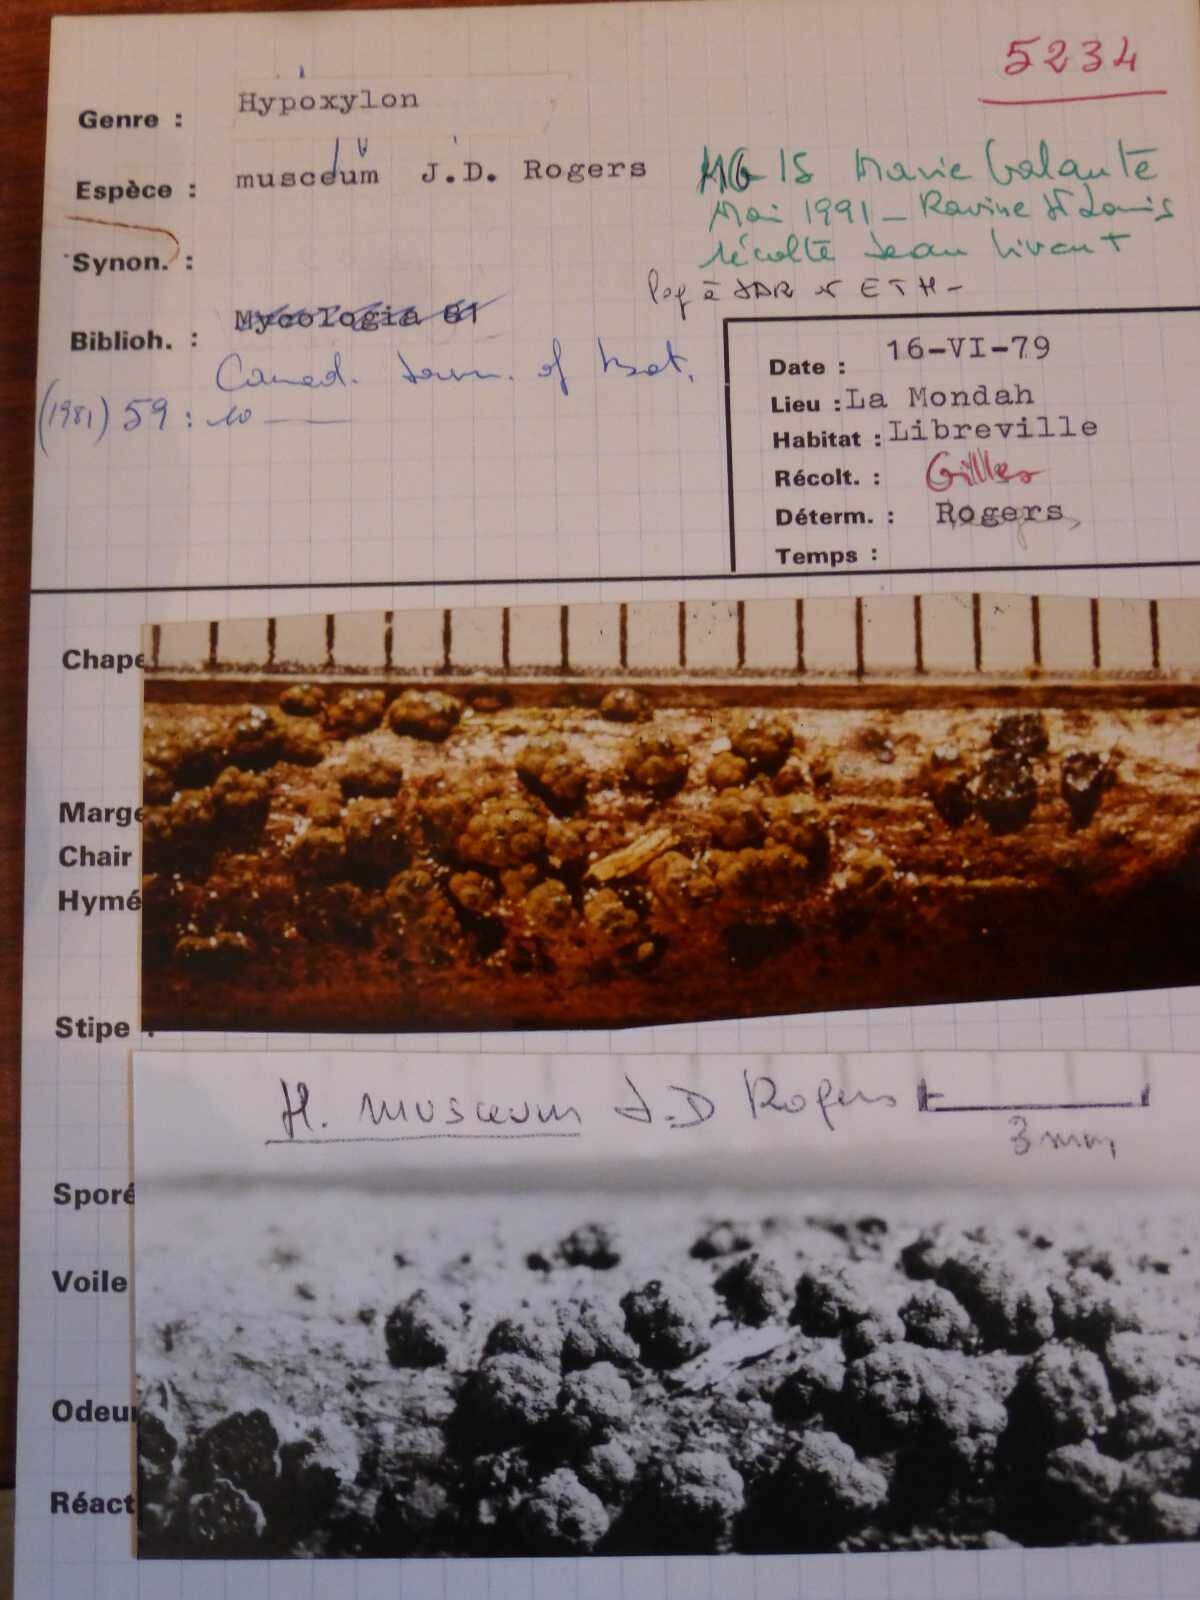 5234
Genre : Hypoxylon
Espèce : musceum J.D. Rogers
MG 15 Marie Galante
Mai 1991 - Ravine St Louis
récolte Jean Vivant
à JDR ETH -
Synon. :
Biblioh. : Mycologia 61
Canad. Journ. of Bot.
(1981) 59 : 10
Date : 16-VI-79
Lieu : La Mondah
Habitat : Libreville
Récolt. : Gilles
Déterm. : Rogers
Temps :
Chape
Marge
Chair
Hymé
Stipe :
H. musceum J.D Rogers
3 mm
Sporé
Voile
Odeur
Réact